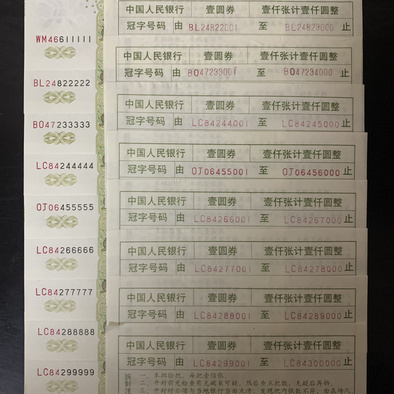 WM46611111
BL24822222
BO47233333
LC84244444
OJ06455555
LC84266666
LC84277777
LC84288888
LC84299999
中国人民银行 壹圆券 壹仟张计壹仟圆整
冠字号码 由 BL24822001 至 BL24823000 止
中国人民银行 壹圆券 壹仟张计壹仟圆整
冠字号码 由 BO47233001 至 BO47234000 止
中国人民银行 壹圆券 壹仟张计壹仟圆整
冠字号码 由 LC84244001 至 LC84245000 止
中国人民银行 壹圆券 壹仟张计壹仟圆整
冠字号码 由 OJ06455001 至 OJ06456000 止
中国人民银行 壹圆券 壹仟张计壹仟圆整
冠字号码 由 LC84266001 至 LC84267000 止
中国人民银行 壹圆券 壹仟张计壹仟圆整
冠字号码 由 LC84277001 至 LC84278000 止
中国人民银行 壹圆券 壹仟张计壹仟圆整
冠字号码 由 LC84288001 至 LC84289000 止
中国人民银行 壹圆券 壹仟张计壹仟圆整
冠字号码 由 LC84299001 至 LC84300000 止